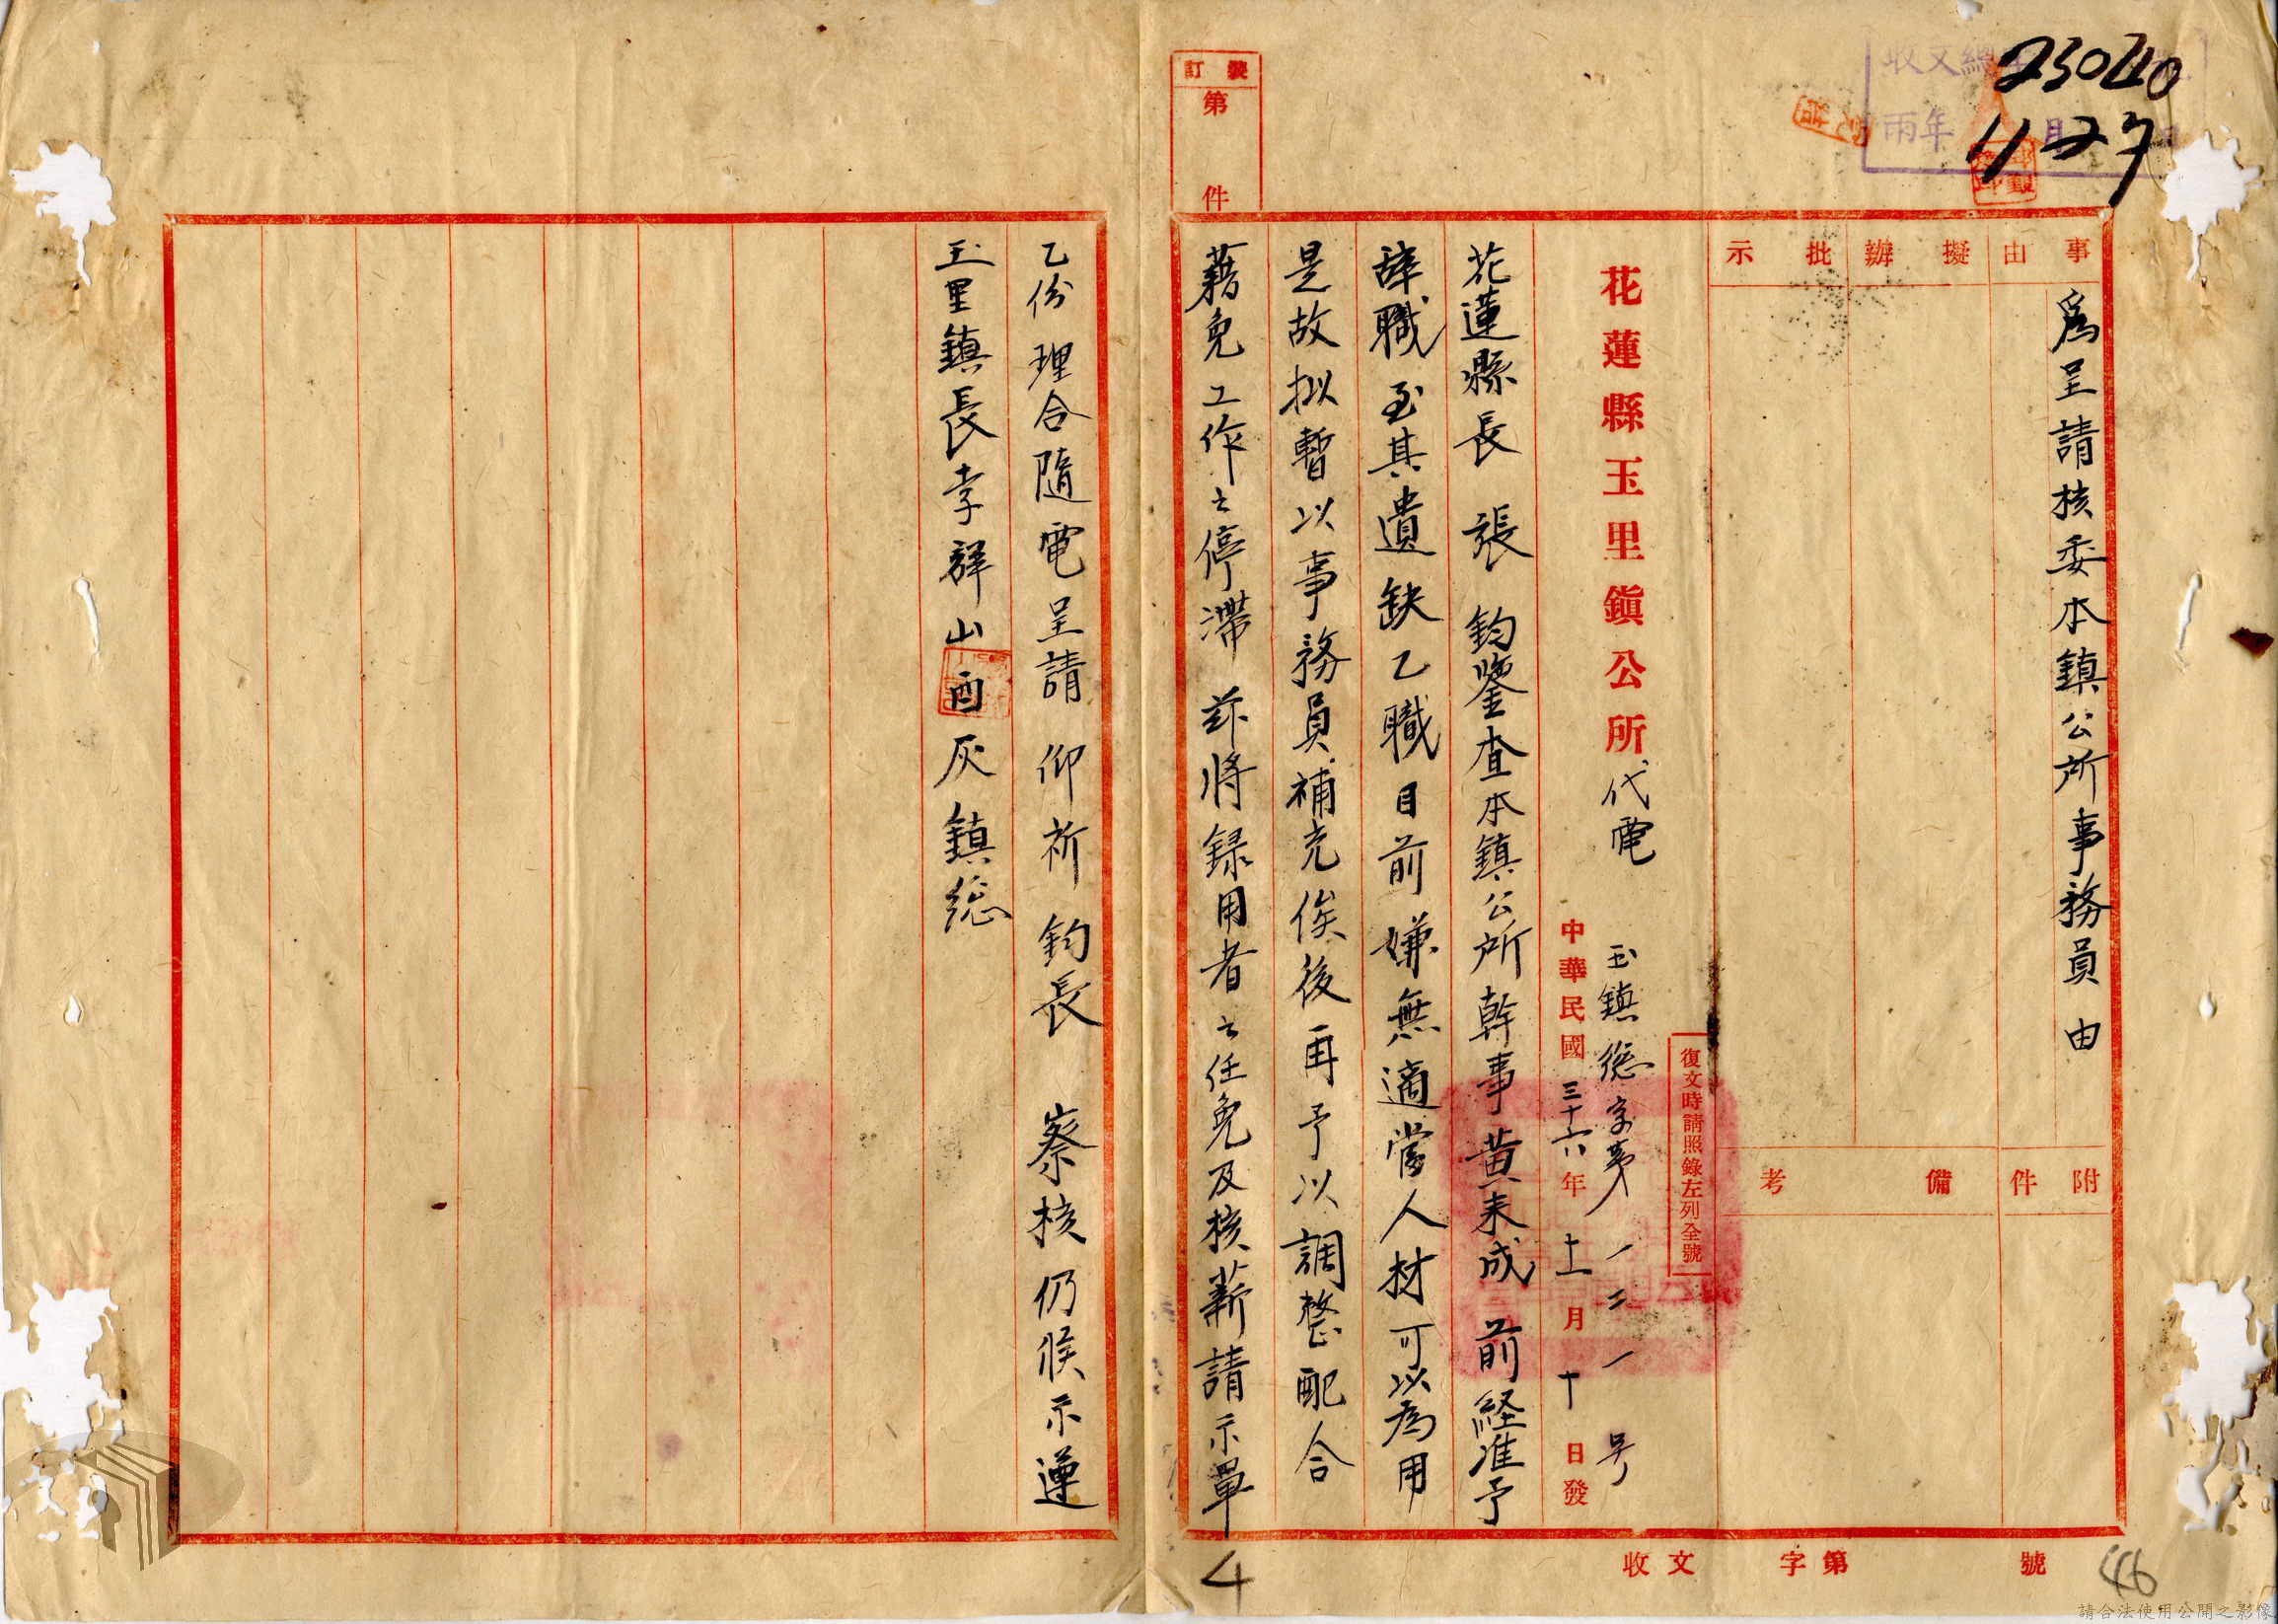 23040
11 27
裝訂
第
件
事由
擬辦
批示
為呈請核委本鎮公所事務員由
附件
備考
復文時請照錄左列全號
花蓮縣玉里鎮公所代電
玉鎮總字第一二一号
中華民國三十六年十一月十日發
花蓮縣長 張 鈞鑒查本鎮公所幹事黃来成前経准予
辞職至其遺缺乙職目前嫌無適當人材可以為用
是故拟暫以事務員補充俟後再予以調整配合
藉免工作之停滯 茲將録用者之任免及核薪請示單
乙份理合隨電呈請 仰祈 鈞長 察核仍候示遵
玉里鎮長李群山酉灰鎮総
收文 字第 號
4
46
請合法使用公開之影像